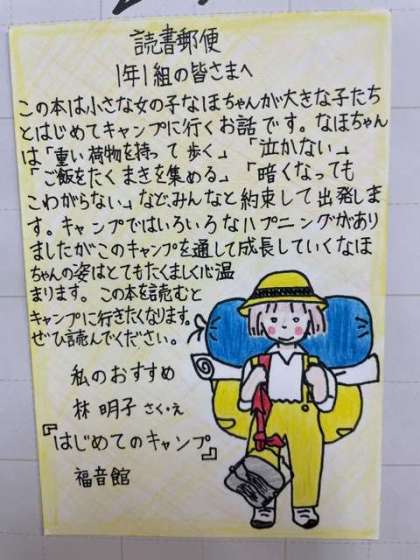 読書郵便
1年1組の皆さまへ
この本は小さな女の子なほちゃんが大きな子たち
とはじめてキャンプに行くお話です。なほちゃん
は「重い荷物を持って歩く」「泣かない」
「ご飯をたくまきを集める」「暗くなっても
こわがらない」など、みんなと約束して出発しま
す。キャンプではいろいろなハプニングがあり
ましたがこのキャンプを通して成長していくなほ
ちゃんの姿はとてもたくましく心温
まります。この本を読むと
キャンプに行きたくなります。
ぜひ読んでください。
私のおすすめ
林 明子 さく・え
『はじめてのキャンプ』
福音館